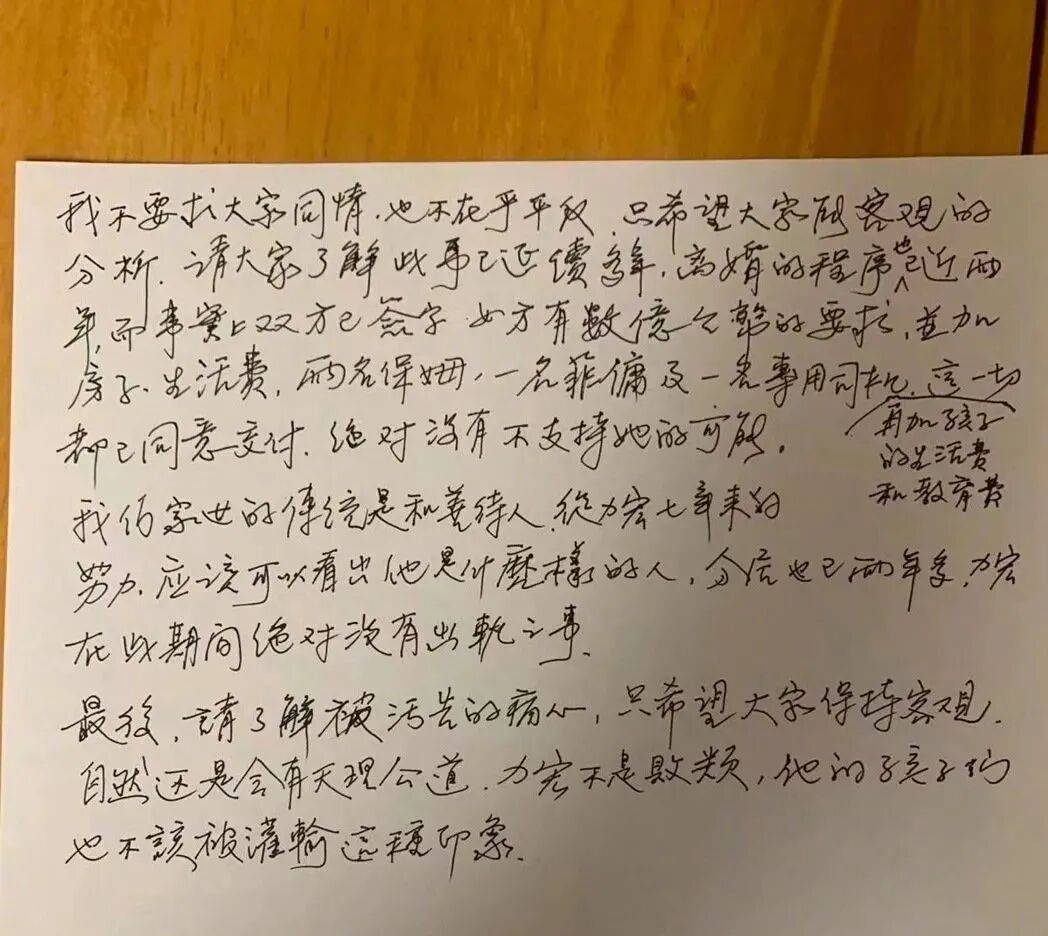 我不要求大家同情.也不在乎平反.只希望大家能客观的
分析.請大家了解此事已延續多年,离婚的程序也已近两
年,而事實上双方已簽字.女方有數億台幣的要求,並加
房子.生活費,兩名保姆.一名菲傭及一名專用司机.這一切
再加孩子
的生活費
和教育費
都已同意交付.絕对沒有不支持她的可能。
我们家世的傳統是和善待人.從力宏七年来的
努力.应该可以看出他是什麼樣的人,分居也已兩年多,力宏
在此期间绝对没有出軌之事.
最後,請了解被污告的痛心,只希望大家保持客观.
自然还是会有天理公道.力宏不是败类,他的孩子们
也不該被灌輸這種印象.